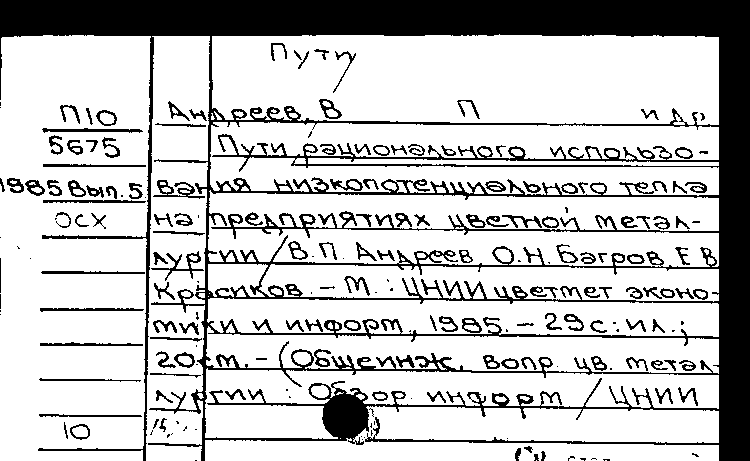 Пути
П10 Андреев, В П и др
5675 Пути рационального использо-
1985 Вып.5 вания низкопотенциального тепла
ОСХ на предприятиях цветной метал-
лургии / В.П. Андреев, О.Н. Багров, Е В
Красиков. - М. : ЦНИИ цветмет эконо-
мики и информ, 1985. - 29 с : ил. ;
20 см. - (Общеинж. вопр цв. метал-
лургии : Обзор информ / ЦНИИ
10
См